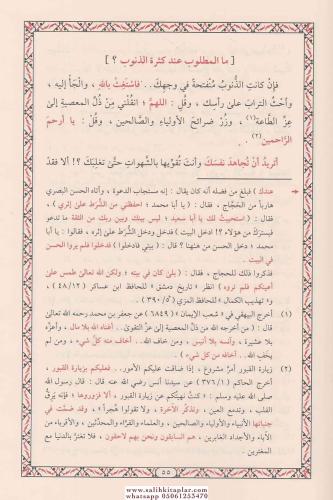 [ ما المطلوب عند كثرة الذنوب ؟ ]
فإن كانتِ الذُّنوبُ مُنفتحةً في وجهِكَ . . فاستَغِثْ باللهِ ، والجَأْ إليه ،
واحْثُ الترابَ علىٰ رأسِك ، وقُلِ : اللهمَّ ؛ انقُلْني مِنْ ذُلِّ المعصيةِ إلىٰ
عِزِّ الطَّاعةِ(١) ، وزُرْ ضرائحَ الأولياءِ والصَّالحين ، وقُلْ : يا أرحمَ
الرَّاحمين(٢) .
أتريدُ أنْ تُجاهدَ نفسَكَ وأنتَ تُقوِّيها بالشَّهواتِ حتَّىٰ تغلِبَكَ ؟! ألا فقدْ
عندك ) فبلغ من فضله أنه كان يقال : إنه مستجاب الدعوة ، وأتاه الحسن البصري
هارباً من الحجَّاج ، فقال : ( يا أبا محمد ؛ احفظني من الشُّرَط علىٰ إثري ) ،
فقال : ( استحييتُ لك يا أبا سعيد ؛ ليس بينك وبين ربك من الثقة ما تدعو
فيسترك من هؤلاء ؟! ادخل البيت ) فدخل ودخل الشُّرَط علىٰ إثره ، فقالوا : يا أبا
محمد ؛ دخل الحسن من هٰهنا ؟ قال : ( بيتي فادخلوا ) فدخلوا فلم يروا الحسن
في البيت .
فذكروا ذلك للحجاج ، فقال : ( بلىٰ كان في بيته ، ولكن الله تعالىٰ طمس علىٰ
أعينكم فلم تروه ) انظر « تاريخ دمشق » للحافظ ابن عساكر ( ٤٨/١٢ ) ،
و« تهذيب الكمال » للحافظ المزي ( ٣٩٠/٥ ) .
(١) أخرج البيهقي في « شعب الإيمان » ( ٦٨٤٩ ) عن جعفر بن محمد رحمه الله تعالىٰ
قال : ( من أخرجه الله من ذُلِّ المعصية إلىٰ عِزِّ التقوىٰ . . أغناه الله بلا مال ، وأعزَّه
بلا عشيرة ، وآنسه بلا أنيس ، ومن خاف الله . . أخاف منه كلَّ شيء ، ومن لم
يخف الله . . أخافه من كل شيء ) .
(٢) زيارة القبور أمرٌ مشروع ، إذا ضاقت عليكم الأمور . . فعليكم بزيارة القبور ،
أخرج الحاكم ( ٣٧٦/١ ) عن سيدنا أنس رضي الله عنه قال : قال رسول الله
صلى الله عليه وسلم : « كنتُ نهيتُكم عن زيارة القبور ، ألا فزوروها ؛ فإنه يَرِقُّ
القلب ، وتدمع العين ، وتذكِّر الآخرة ، ولا تقولوا هُجراً » ، وقد ضمَّت في
جنباتها الأنبياء والأولياء والصالحين ، والعلماء والقرَّاء والمحدِّثين ، والأقرباء من
الآباء والأجداد الغابرين ، هم السابقون ونحن بهم لاحقون ، فلا تغترَّ بالدنيا مع
المغترين .
٥٥
www.salihkitaplar.com
whatsapp 05061253470